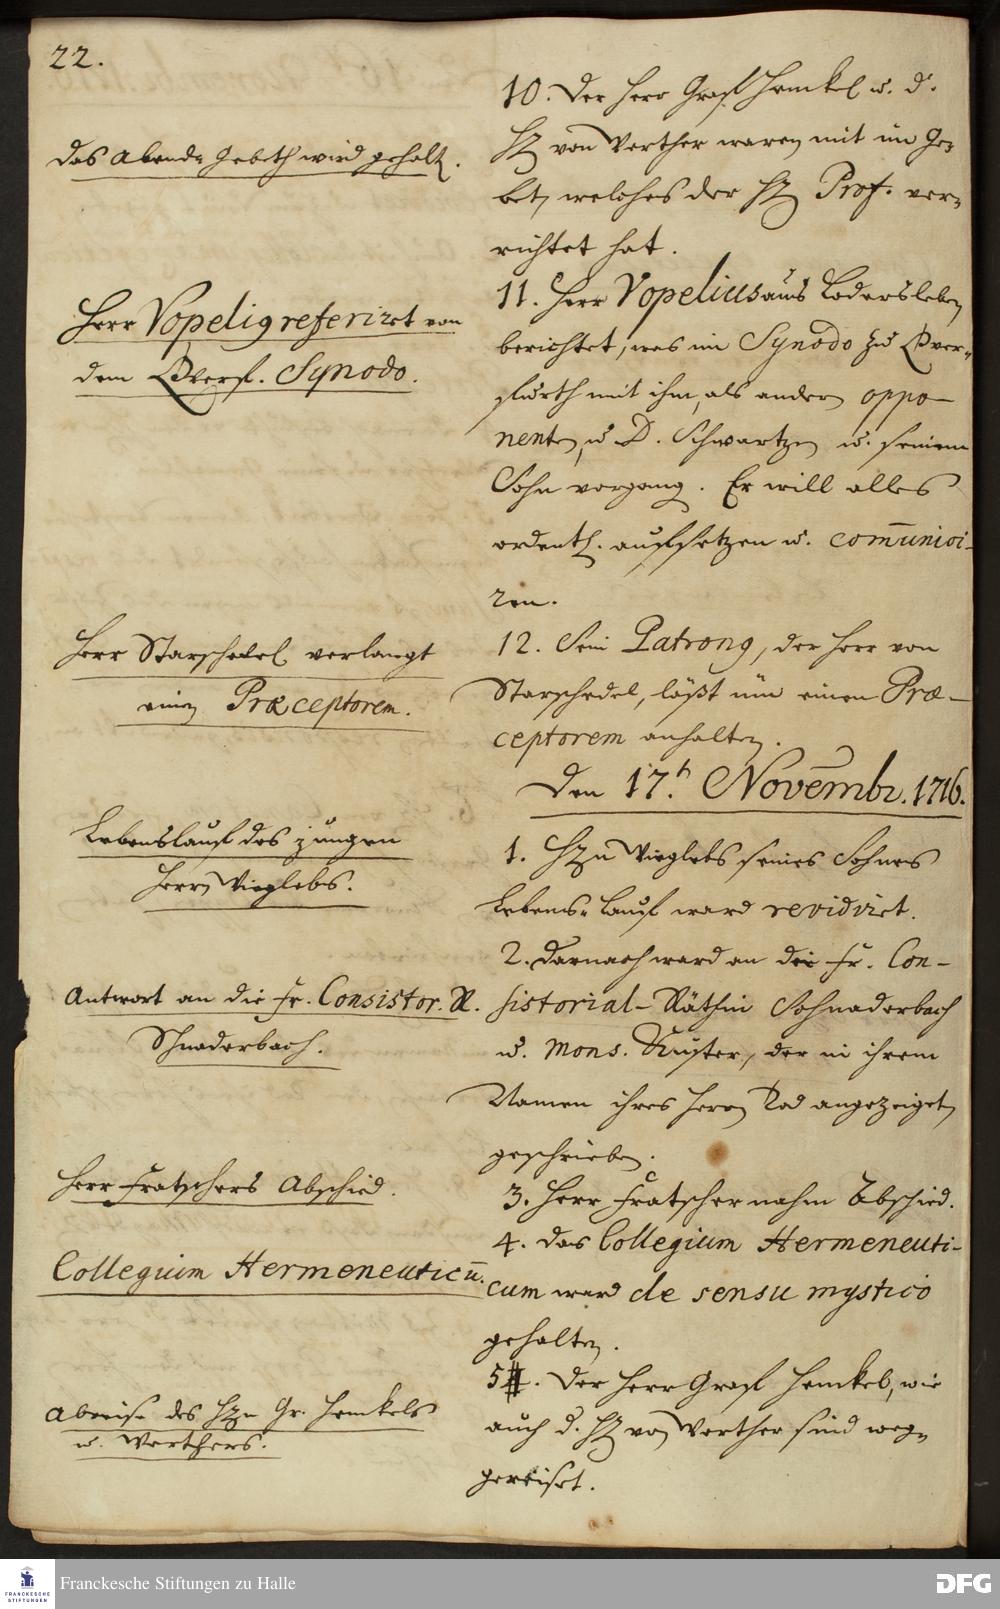 22.
Das Abend- Gebeth wird gehalt.
10. Der Herr Graff Henckel u. d.
H. von Werther waren mit im Ge-
bet, welches der H. Prof. ver-
richtet hat.
Herr Vopelig referiret von
dem Qverf. Synodo.
11. Herr Vopelius aus Lodersleben
berichtet, was im Synodo zu Qver-
furth mit ihm, als andern oppo-
nenten, u D. Schwartzen u. seinem
Sohn vorgang. Er will alles
ordentl. auffsetzen u. com̄unici-
ren.
Herr Starschedel verlangt
einen Præceptorem.
12. Sein Patrong, der Herr von
Starschedel, läßt um einen Præ-
ceptorem anhalten.
Den 17.t Novembr. 1716.
Lebenslauff des jungen
Herrn Vieglebs.
1. Hn Vieglebs seines Sohnes
Lebens-Lauff ward revidiret.
Antwort an die Fr. Consistor. R.
Schnaderbach.
2. Darnach ward an die Fr. Con-
sistorial-Räthin Schnaderbach
u. Mons. Küster, der in ihrem
Namen ihres Herrn Tod angezeiget,
geschrieben.
Herr Fratschers Abschied.
3. Herr Fratscher nahm Abschied.
Collegium Hermeneuticū.
4. Das Collegium Hermeneuti-
cum ward de sensu mystico
gehalten.
Abreise des Hn Gr. Henckels
u. Werthers.
5. Der Herr Graff Henckel, wie
auch d. H. von Werther sind weg-
gereiset.
FRANCKESCHE
STIFTUNGEN
Franckesche Stiftungen zu Halle
DFG